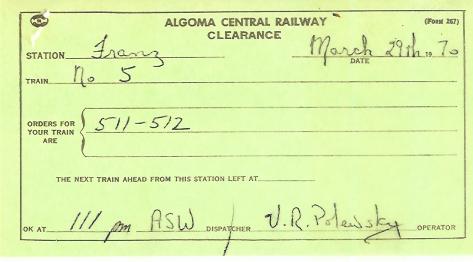 ALGOMA CENTRAL RAILWAY (Form 267)
CLEARANCE
STATION Franz March 29th 1970
DATE
TRAIN No 5
ORDERS FOR
YOUR TRAIN
ARE
511-512
THE NEXT TRAIN AHEAD FROM THIS STATION LEFT AT
OK AT 111 pm ASW DISPATCHER V.R. Polewsky OPERATOR